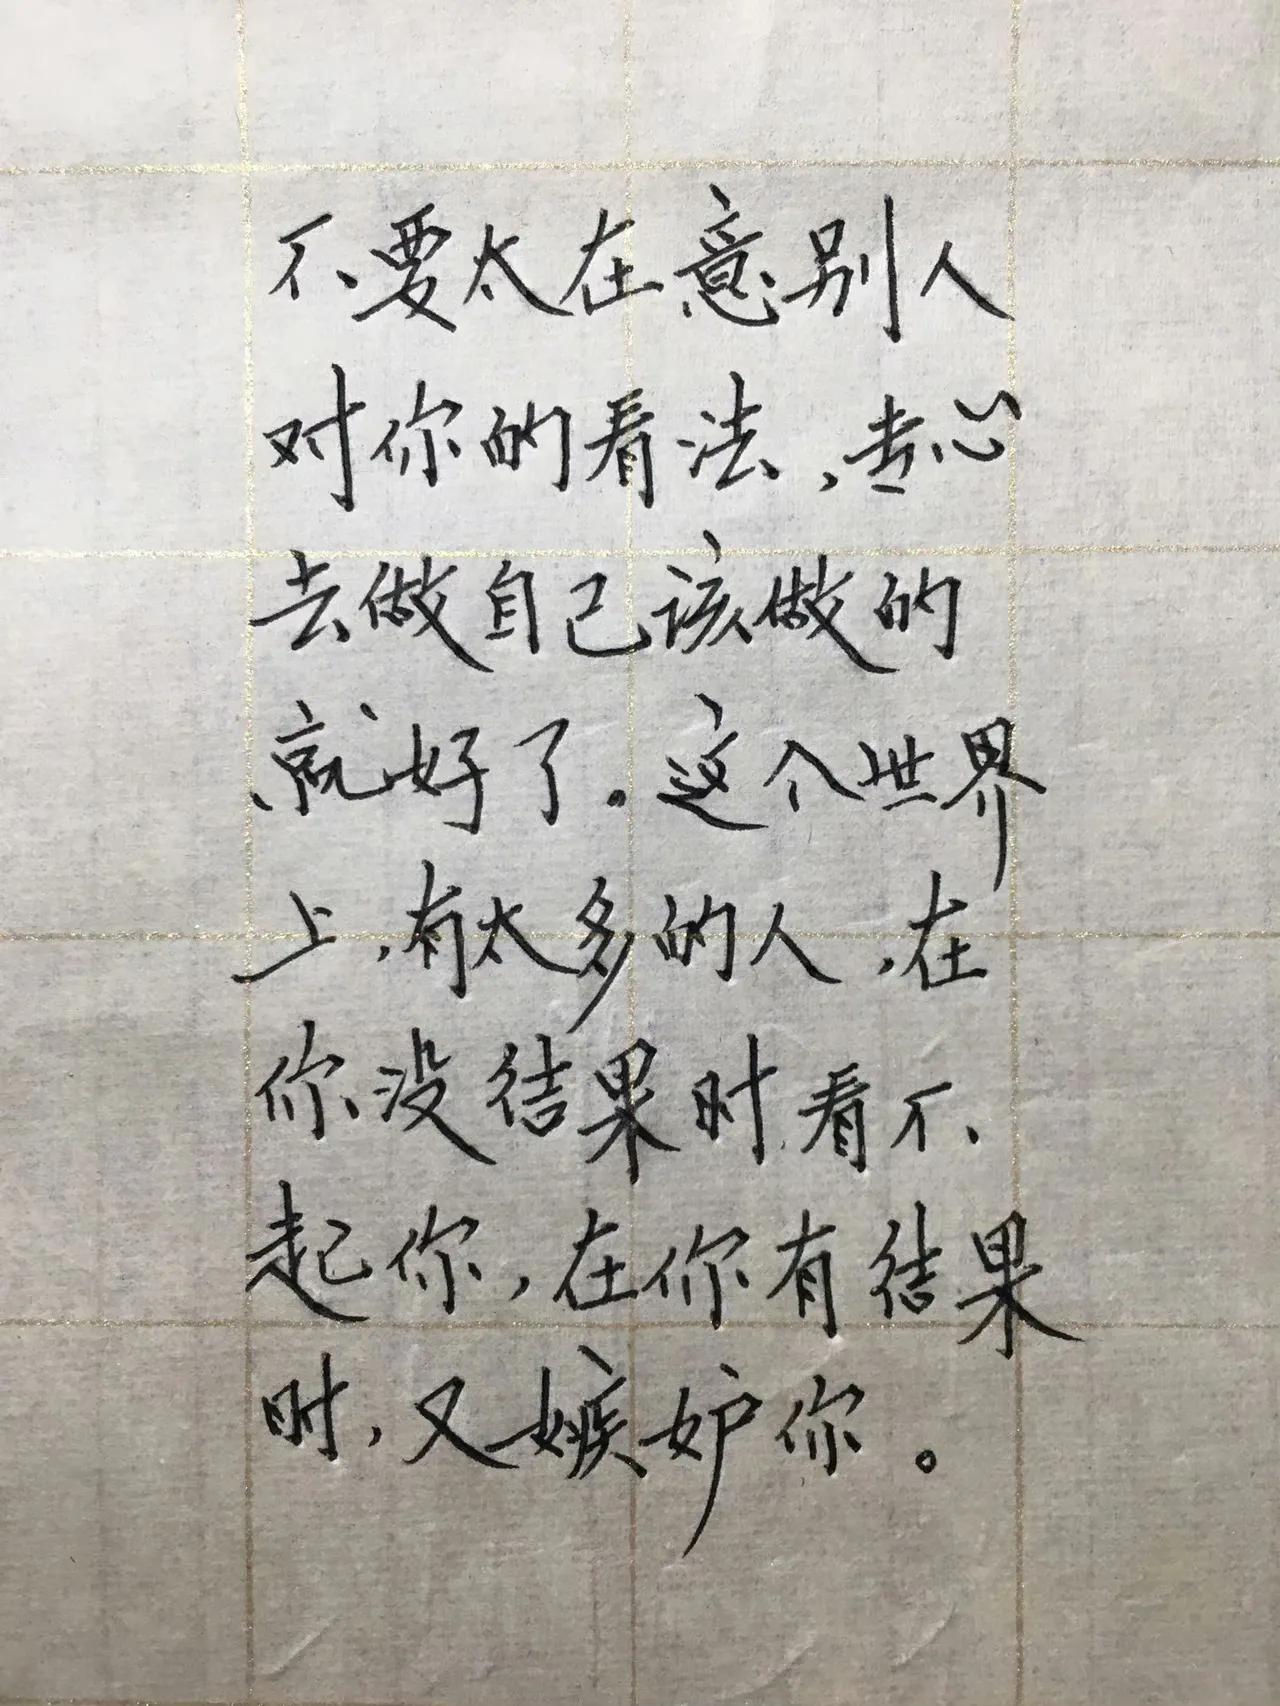 不要太在意别人
对你的看法,专心
去做自己该做的
就好了。这个世界
上,有太多的人,在
你没结果时看不
起你,在你有结果
时,又嫉妒你。